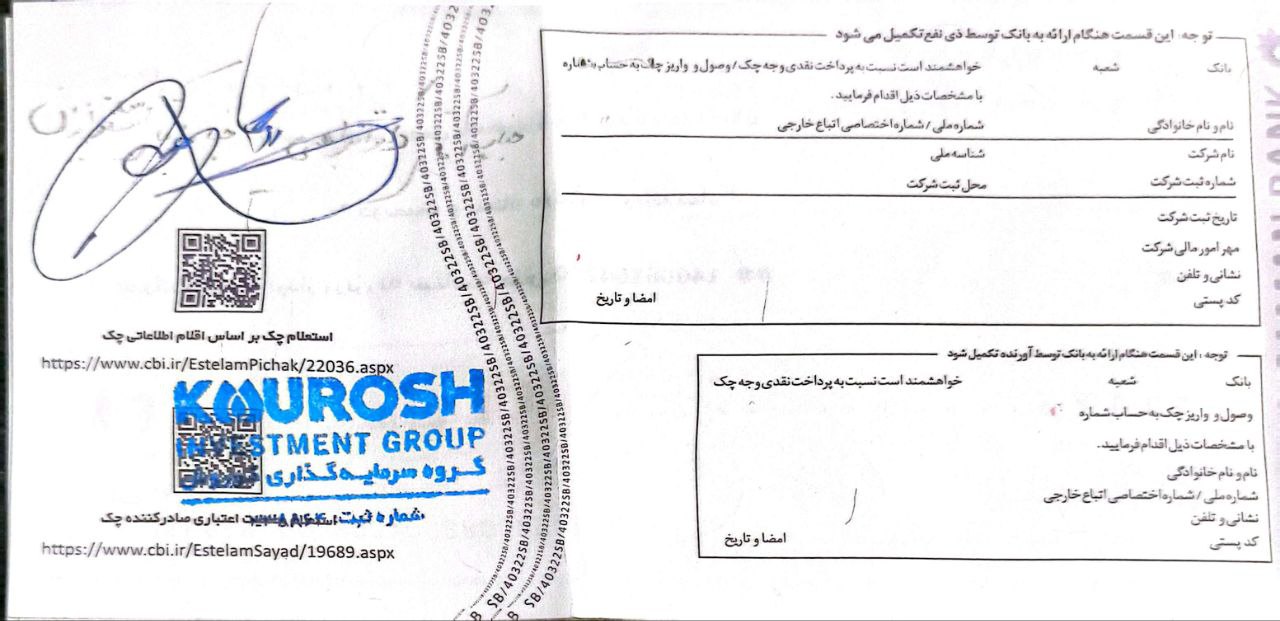 توجه: این قسمت هنگام ارائه به بانک توسط ذی نفع تکمیل می شود
بانک شعبه خواهشمند است نسبت به پرداخت نقدی وجه چک / وصول و واریز چک به حساب شماره
با مشخصات ذیل اقدام فرمایید.
نام و نام خانوادگی شماره ملی / شماره اختصاصی اتباع خارجی
نام شرکت شناسه ملی
شماره ثبت شرکت محل ثبت شرکت
تاریخ ثبت شرکت
مهر امور مالی شرکت
نشانی و تلفن
کد پستی امضا و تاریخ
توجه: این قسمت هنگام ارائه به بانک توسط آورنده تکمیل شود
بانک شعبه خواهشمند است نسبت به پرداخت نقدی وجه چک
وصول و واریز چک به حساب شماره
با مشخصات ذیل اقدام فرمایید.
نام و نام خانوادگی
شماره ملی / شماره اختصاصی اتباع خارجی
نشانی و تلفن
کد پستی امضا و تاریخ
استعلام چک بر اساس اقلام اطلاعاتی چک
https://www.cbi.ir/EstelamPichak/22036.aspx
KOUROSH
INVESTMENT GROUP
گروه سرمایه گذاری
شماره ثبت:
اعتباری صادرکننده چک
https://www.cbi.ir/EstelamSayad/19689.aspx
SB/403225B/403225B/403225B/403225B